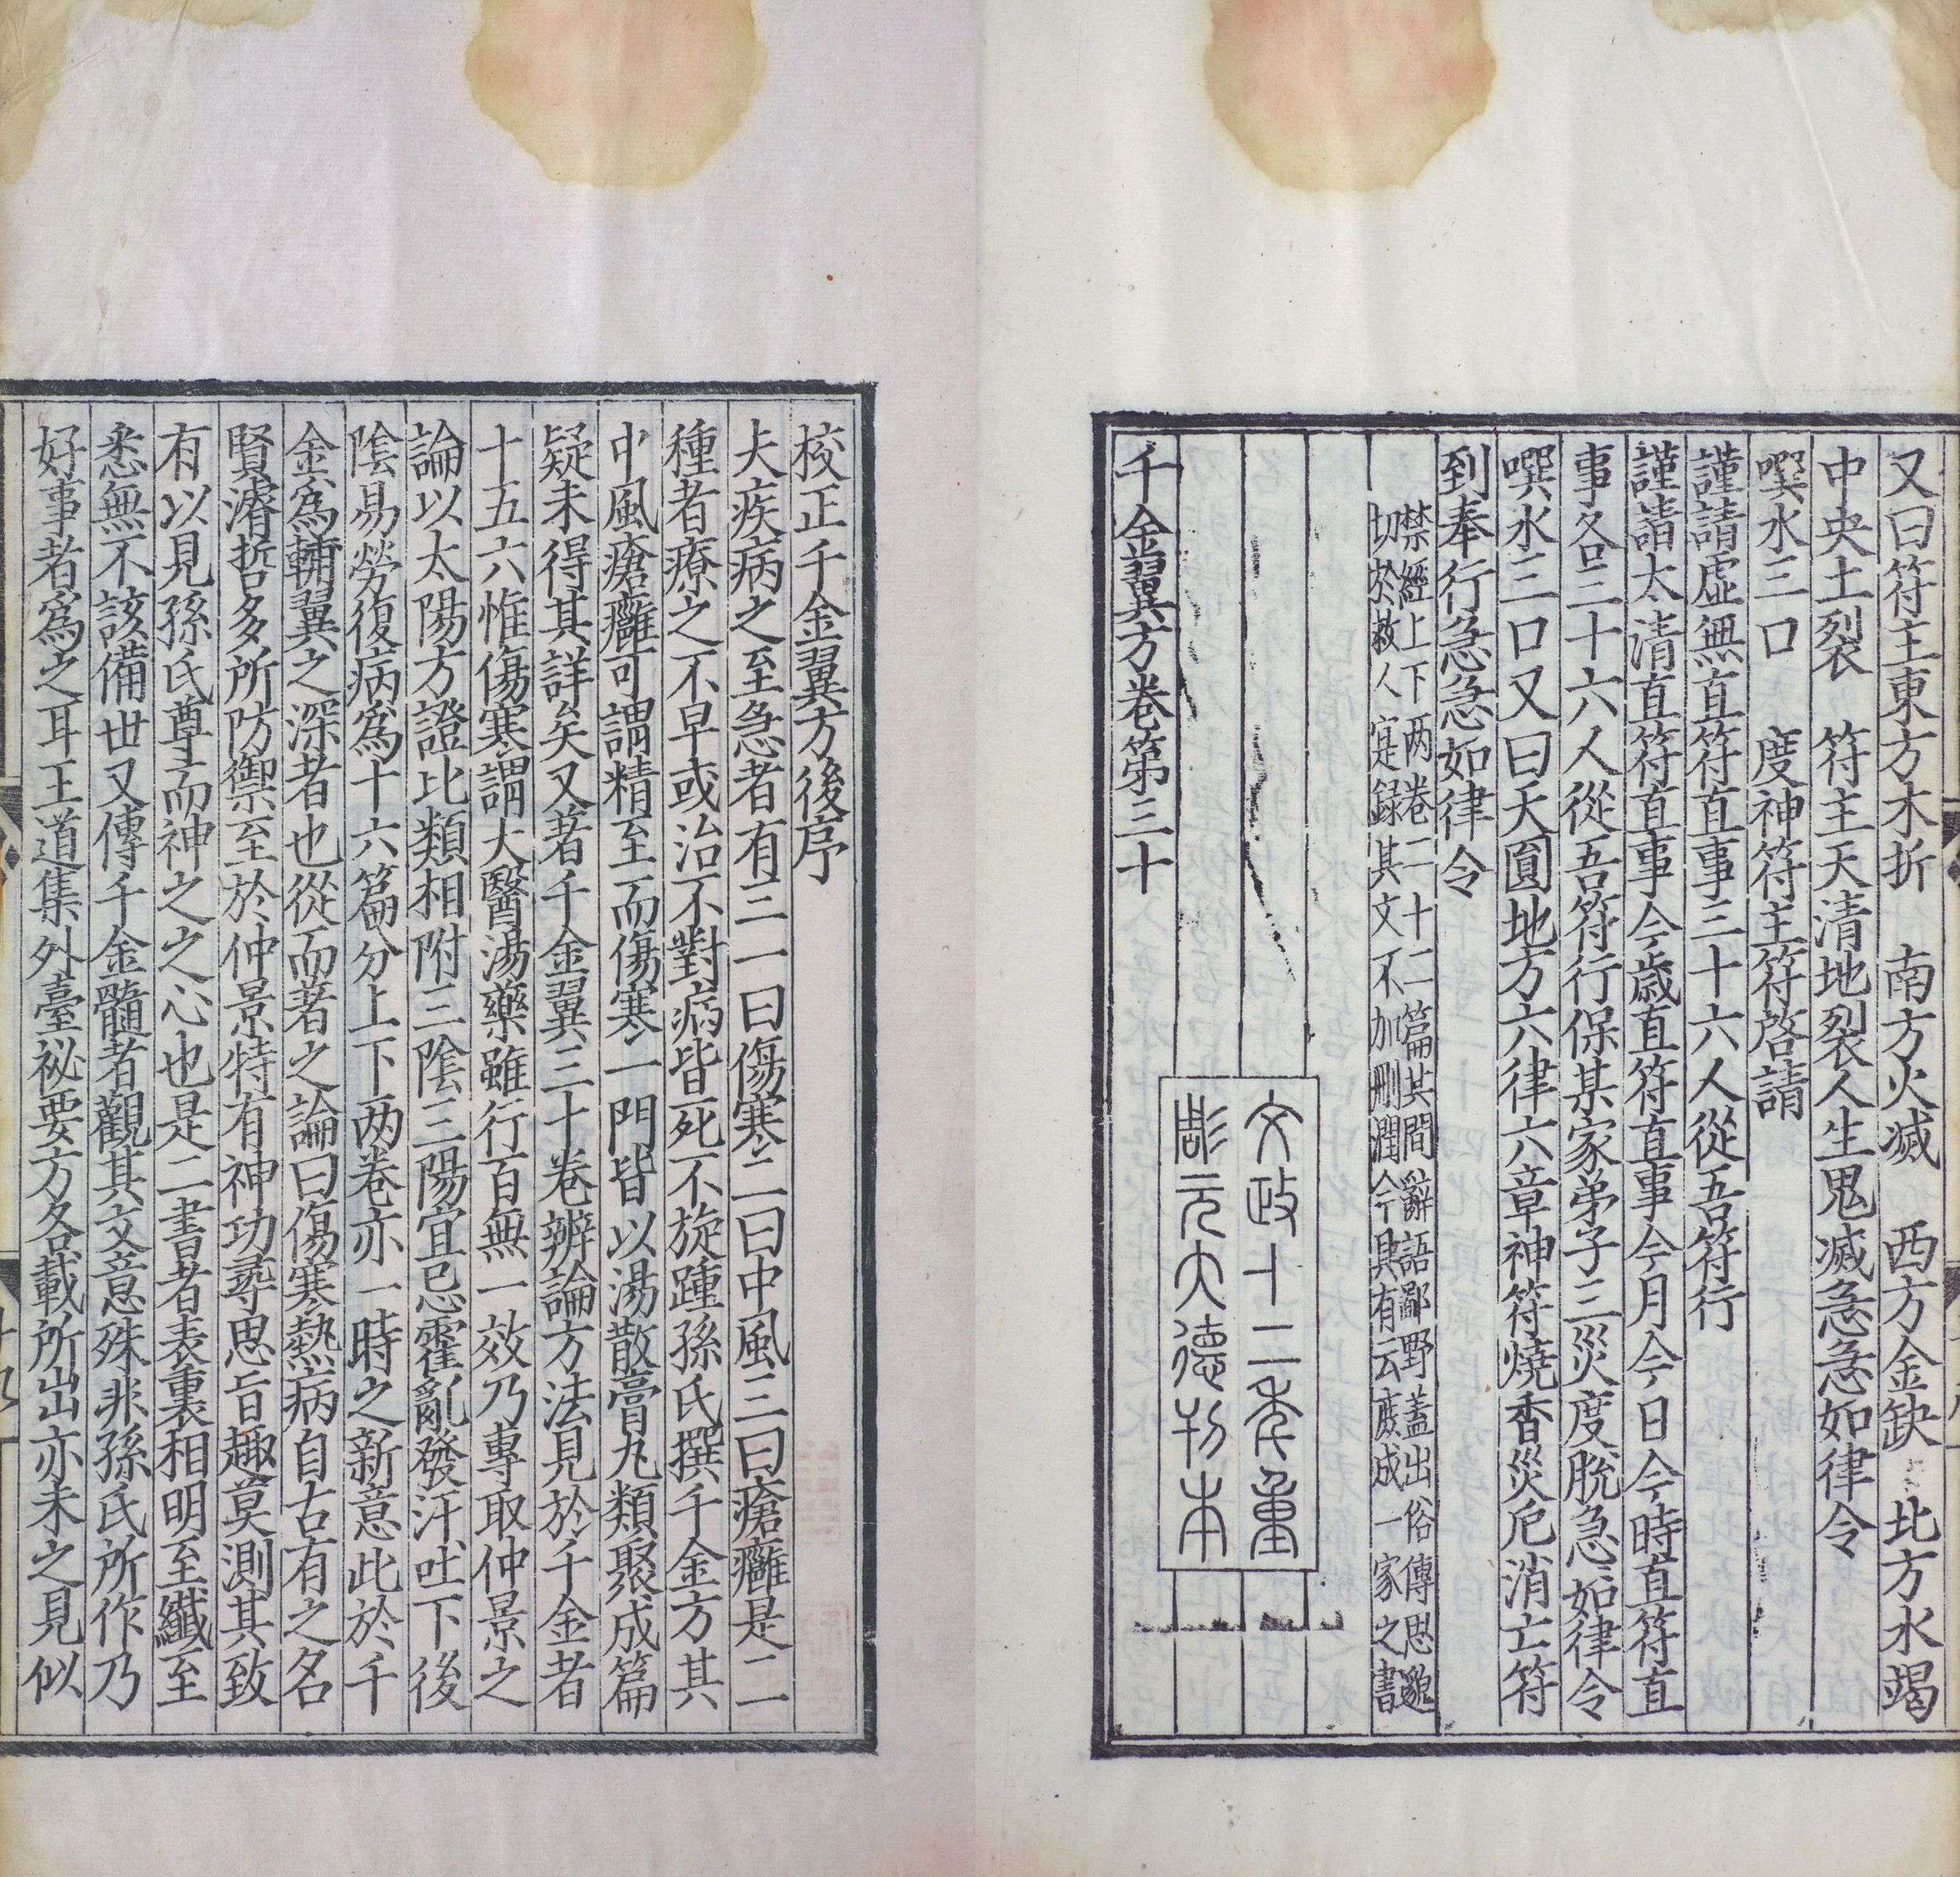 又曰符主東方木折　南方火滅　西方金缺　北方水竭
中央土裂　符主天清地裂人生鬼滅急急如律令
噀水三口　度神符主符啓請
謹請虛無直符直事三十六人從吾符行
謹請太清直符直事今歲直符直事今月今日今時直符直
事各三十六人從吾符行保某家弟子三災度脫急如律令
噀水三口又曰天圓地方六律六章神符燒香災厄消亡符
到奉行急急如律令
禁經上下两卷二十二篇其間辭語鄙野蓋出俗傳思邈
切於救人寔録其文不加刪潤今具有云庶成一家之書
文政十二年重
彫元大德刊本
千金翼方卷第三十
校正千金翼方後序
夫疾病之至急者有三一曰傷寒二曰中風三曰瘡癰是二
種者療之不早或治不對病皆死不旋踵孫氏撰千金方其
中風瘡癰可謂精至而傷寒一門皆以湯散膏丸類聚成篇
疑未得其詳矣又著千金翼三十卷辨論方法見於千金者
十五六惟傷寒謂大醫湯藥雖行百無一效乃專取仲景之
論以太陽方證比類相附三陰三陽宜忌霍亂發汗吐下後
陰易勞復病爲十六篇分上下两卷亦一時之新意此於千
金爲輔翼之深者也從而著之論曰傷寒熱病自古有之名
賢濬哲多所防禦至於仲景特有神功尋思旨趣莫測其致
有以見孫氏尊而神之之心也是二書者表裏相明至纖至
悉無不該備世又傳千金髓者觀其文意殊非孫氏所作乃
好事者爲之耳王道集外臺祕要方各載所出亦未之見似